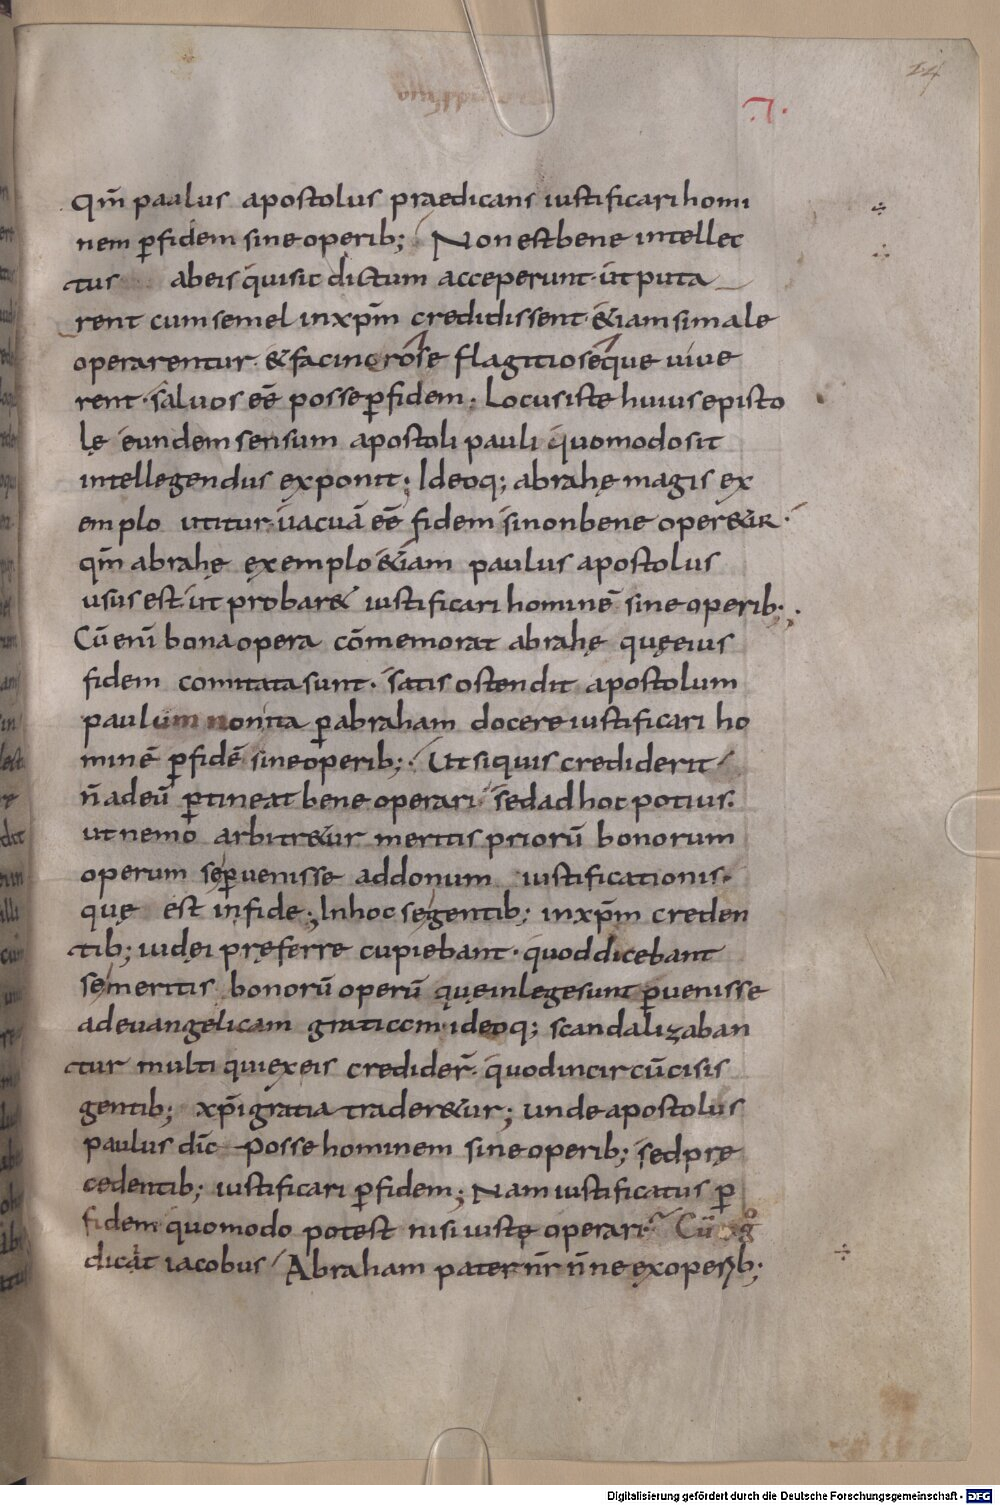 14
.7.
qm̄ paulus apostolus praedicans iustificari homi
nem ꝑ fidem sine operib; Non est bene intellec
tus ab eis qui sic dictum acceperunt · ut puta
rent cum semel in xp̄m credidissent · &iam si male
operarentur · & facinorose flagitioseque vive
rent · salvos eē posse ꝑ fidem · Locus iste huius episto
lę eundem sensum apostoli pauli quomodo sit
intellegendus exponit; Ideoq; abrahę magis ex
emplo utitur · vacuā eē fidem si non bene oper&ur ·
qm̄ abrahę exemplo &iam paulus apostolus
usus est ut probar& iustificari hominē sine operib;
Cū enī bona opera cōmemorat abrahę quę eius
fidem comitata sunt · satis ostendit apostolum
paulum non ita ꝑ abraham docere iustificari ho
minē ꝑ fidē sine operib; Ut si quis crediderit
n̄ ad eū ꝑtineat bene operari sed ad hoc potius ·
ut nemo arbitr&ur meritis priorū bonorum
operum se ꝑvenisse ad donum iustificationis ·
quę est in fide; In hoc se gentib; in xp̄m creden
tib; iudęi pręferre cupiebant · quod dicebant
se meritis bonorū operū quę in lege sunt ꝑvenisse
ad evangelicam gratiam · ideoq; scandalizaban
tur multi qui ex eis credider̄ · quod incircūcisis
gentib; xp̄i gratia trader&ur; unde apostolus
paulus dīc posse hominem sine operib; sed prę
cedentib; iustificari ꝑ fidem; Nam iustificatus ꝑ
fidem quomodo potest nisi iuste operari · Cū gͦ
dicat iacobus Abraham pater nr̄ n̄ne ex operib;
Digitalisierung gefördert durch die Deutsche Forschungsgemeinschaft - DFG